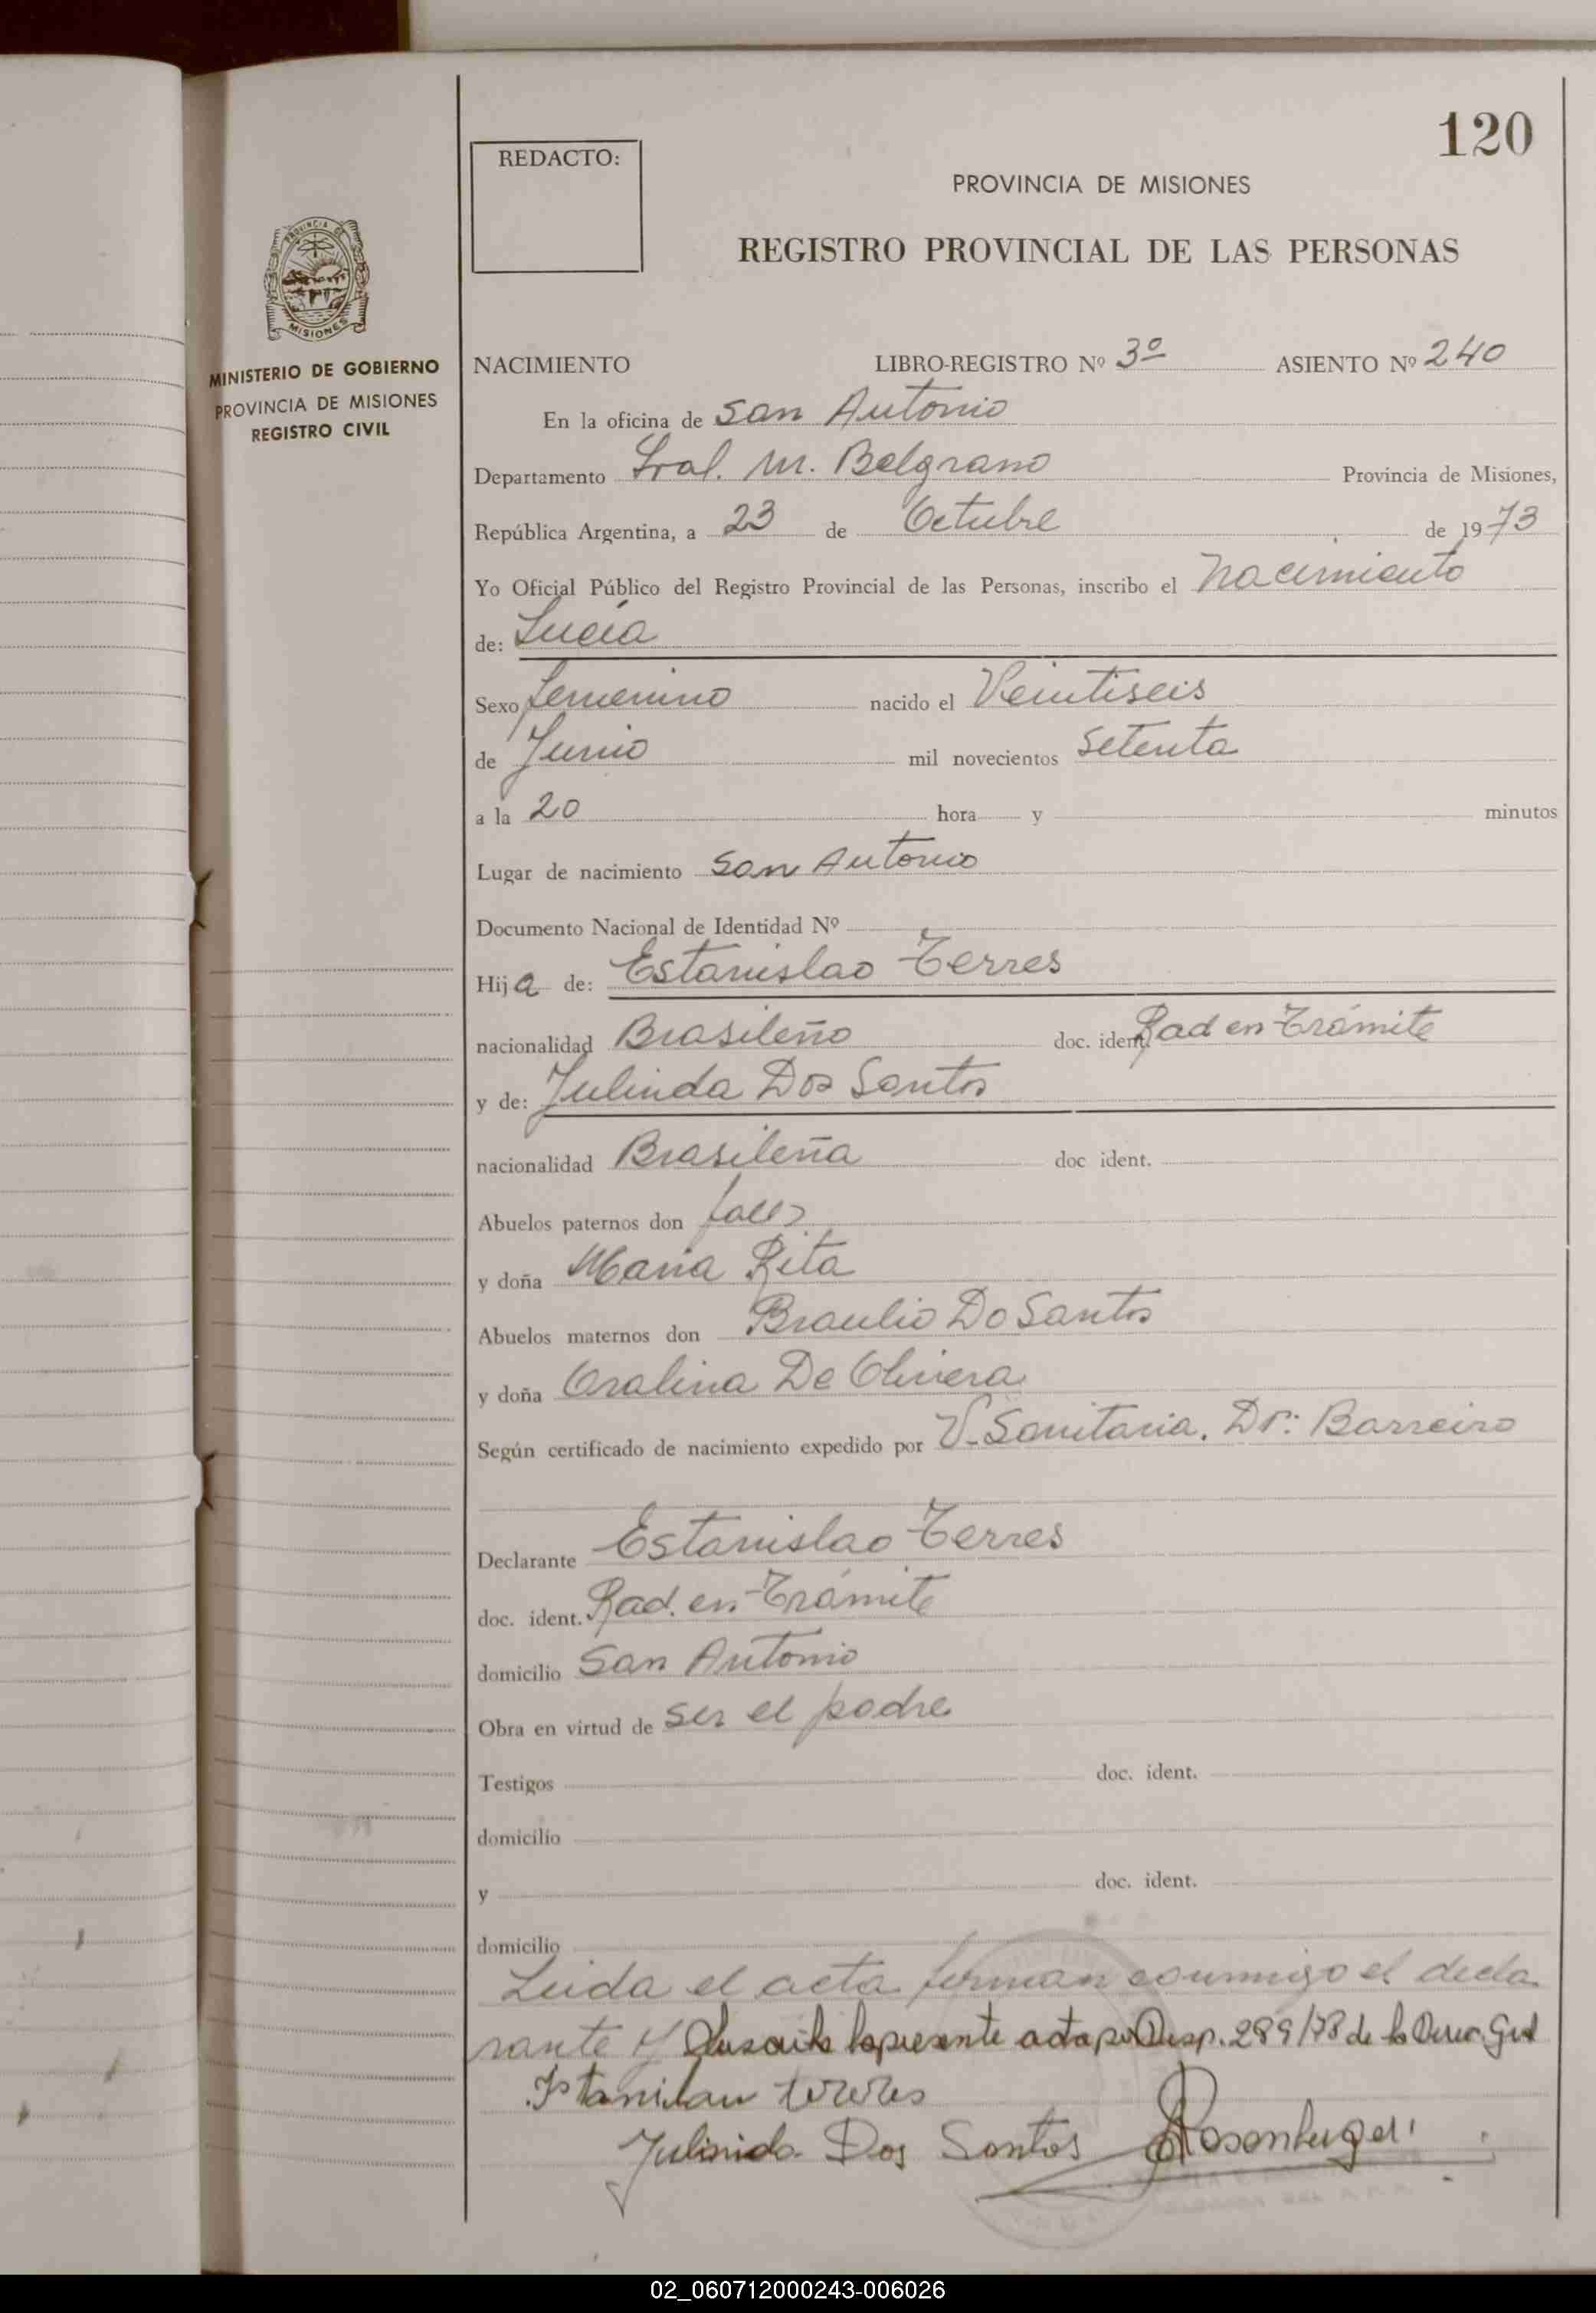 120
REDACTO:
PROVINCIA DE MISIONES
REGISTRO PROVINCIAL DE LAS PERSONAS
PROVINCIA DE
MISIONES
MINISTERIO DE GOBIERNO
PROVINCIA DE MISIONES
REGISTRO CIVIL
NACIMIENTO LIBRO-REGISTRO Nº 3º ASIENTO Nº 240
En la oficina de San Antonio
Departamento Gral. M. Belgrano Provincia de Misiones,
República Argentina, a 23 de Octubre de 1973
Yo Oficial Público del Registro Provincial de las Personas, inscribo el Nacimiento
de: Lucía
Sexo femenino nacido el Veintiseis
de Junio mil novecientos Setenta
a la 20 hora y minutos
Lugar de nacimiento San Antonio
Documento Nacional de Identidad Nº
Hija de: Estanislao Terres
nacionalidad Brasileño doc. ident. Rad en Trámite
y de: Julinda Dos Santos
nacionalidad Brasileña doc ident.
Abuelos paternos don
y doña Maria Rita
Abuelos maternos don Braulio Do Santos
y doña Oralina De Olivera
Según certificado de nacimiento expedido por V. Sanitaria. Dr: Barreiro
Declarante Estanislao Terres
doc. ident. Rad. en Trámite
domicilio San Antonio
Obra en virtud de ser el padre
Testigos doc. ident.
domicilio
y doc. ident.
domicilio
Leida el acta firman conmigo el decla
rante y la presente acta por Disp. 289/73 de la Direc. Gral
Julinida Dos Santos
02_060712000243-006026